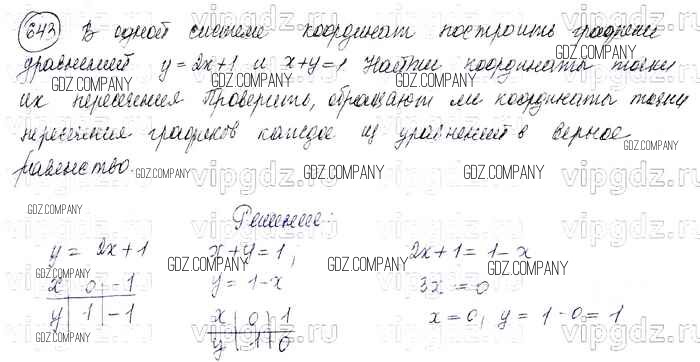 643 В одной системе координат построить графики
уравнений y = 2x+1 и x+y=1 Найти координаты точки
их пересечения Проверить, обращают ли координаты точки
пересечения графиков каждое из уравнений в верное
равенство.
Решение:
y = 2x+1 x+y=1, 2x+1=1-x
x 0 -1 y=1-x 3x=0
y 1 -1 x 0 1 x=0, y=1-0=1
y 1 0
GDZ.COMPANY
vipgdz.ru